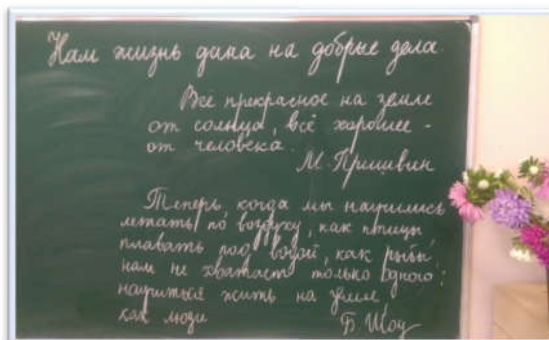 Нам жизнь дана на добрые дела.
Все прекрасное на земле
от солнца, всё хорошее -
от человека.
М. Пришвин
Теперь когда мы научились
летать по воздуху, как птицы
плавать под водой, как рыбы
нам не хватает только одного:
научиться жить на земле,
как люди
Б. Шоу